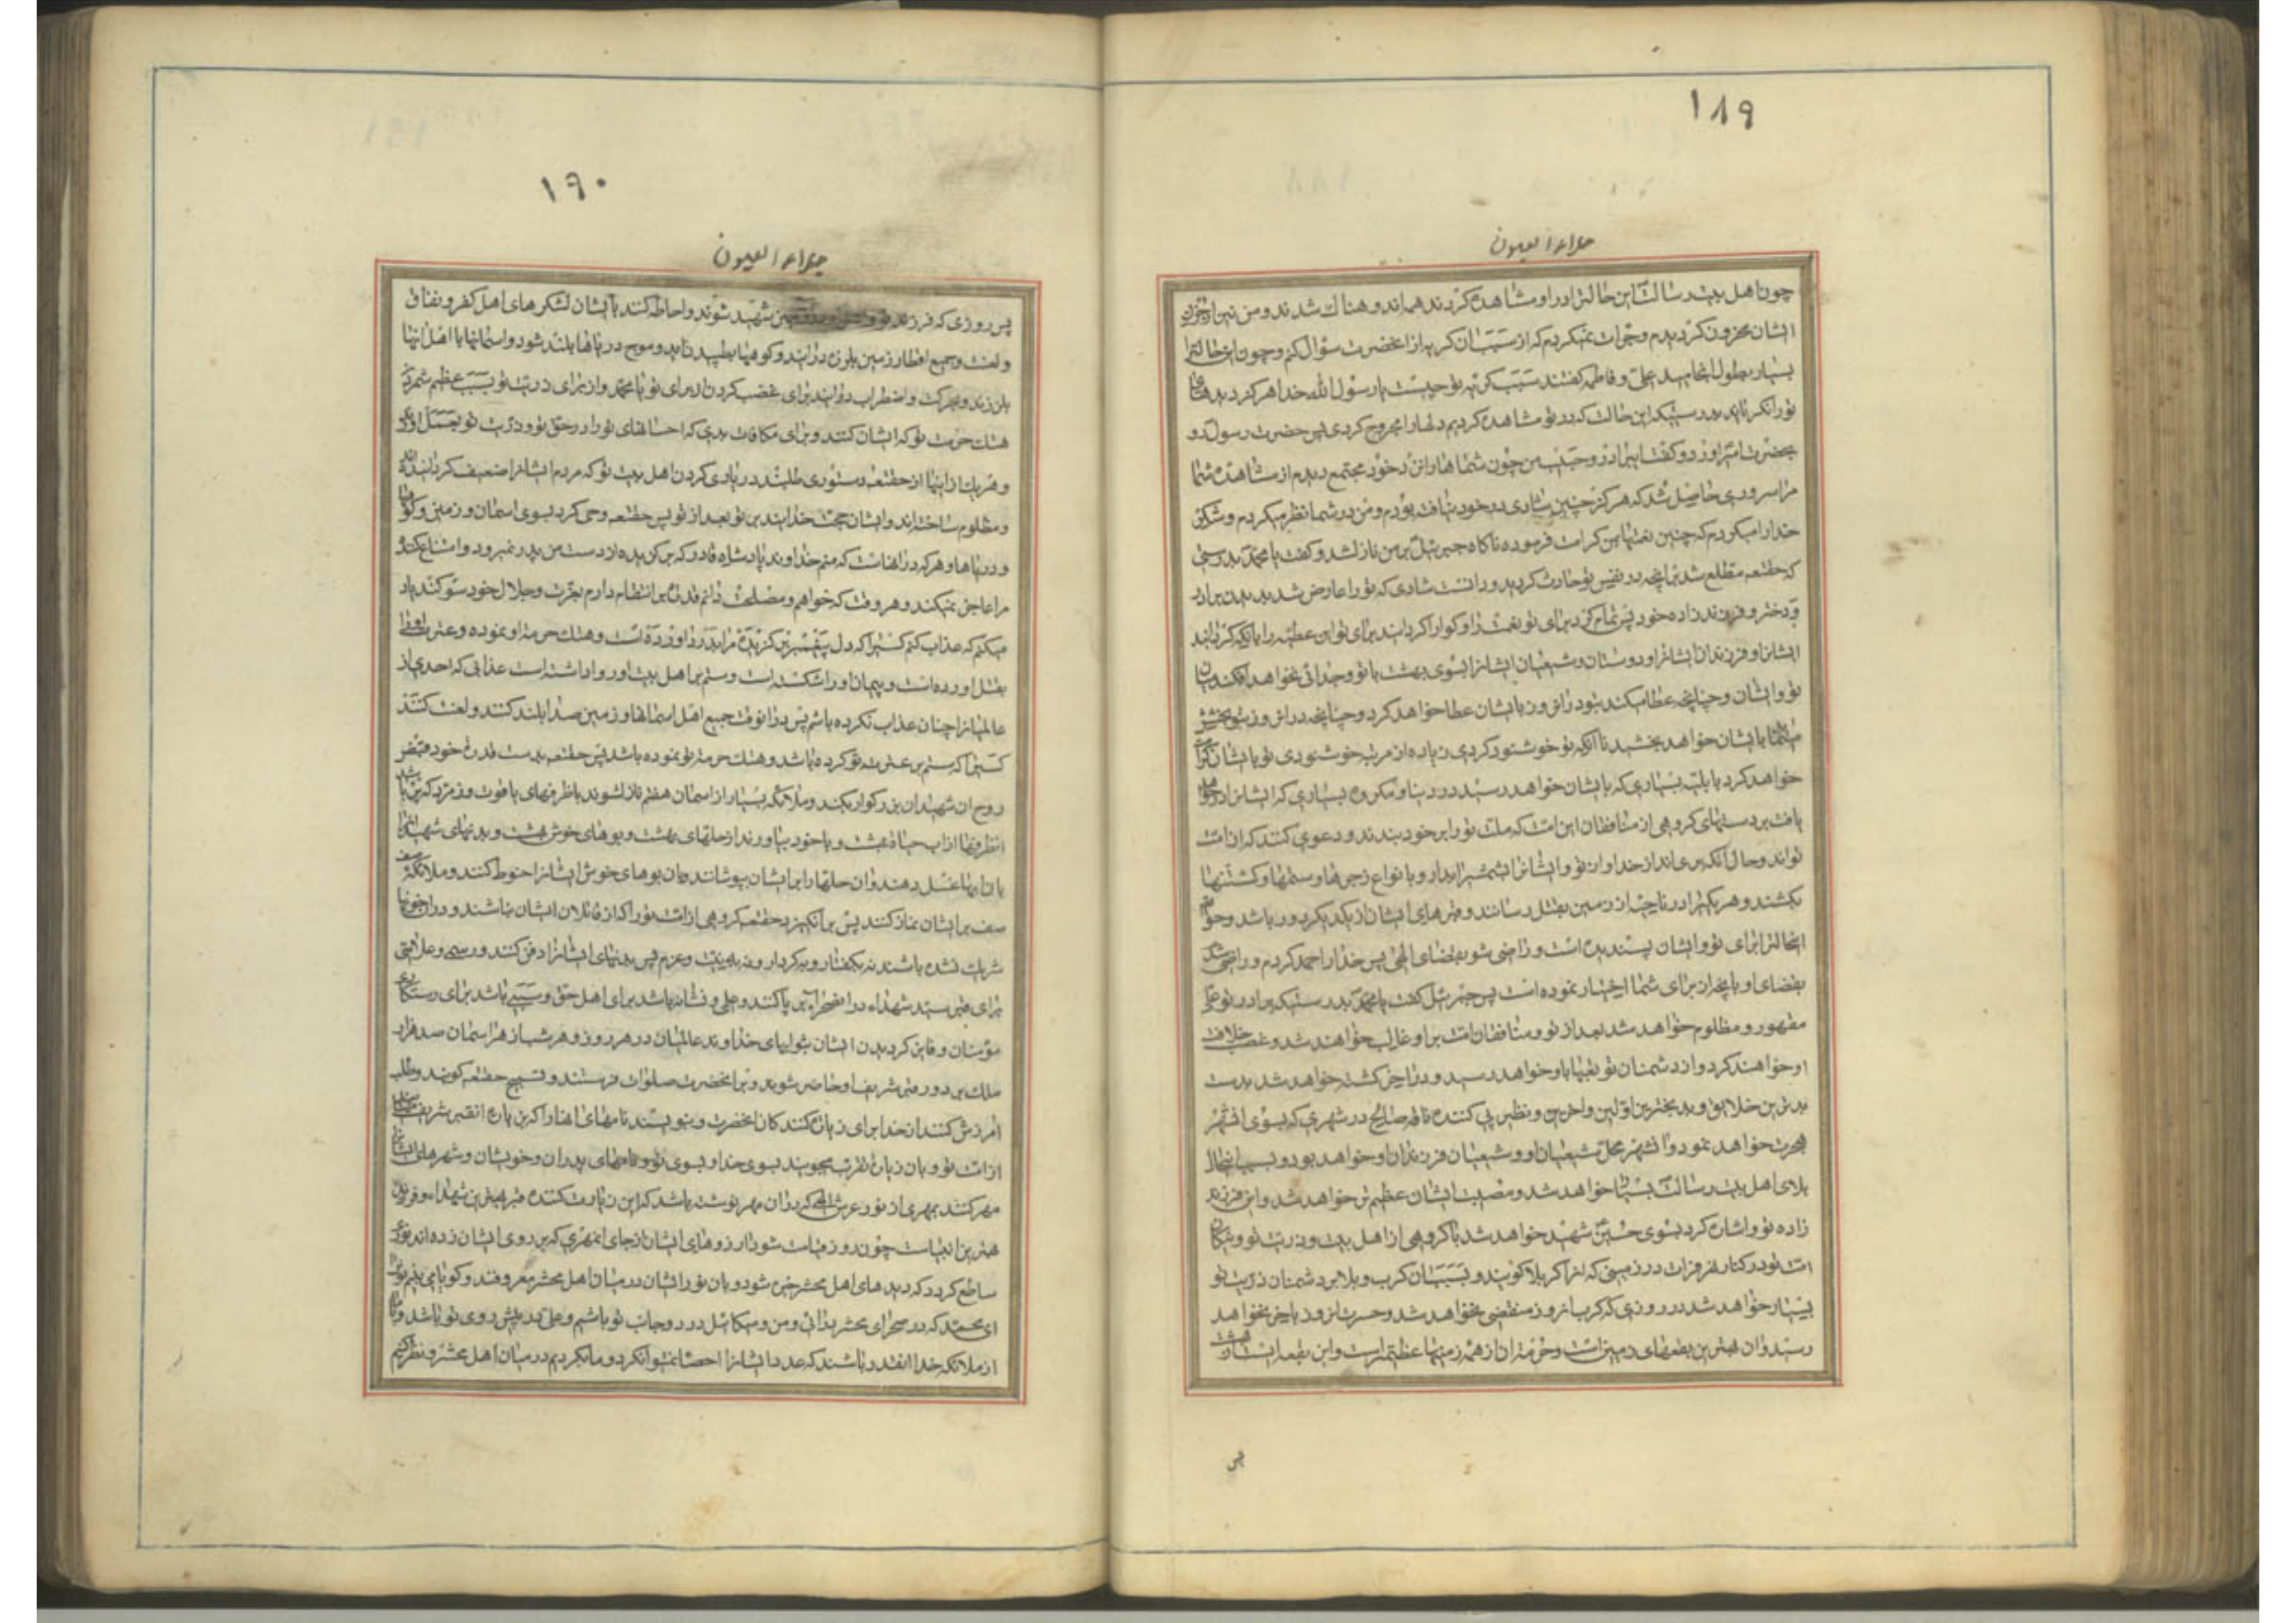 ۱۸۹
جلاء العیون
چون اهل بیت رسالت این حالت را در او مشاهده کردند همه اندوهناک شدند و من نیز از حزن
ایشان محزون گردیدم و جرات نمیکردم که از سبب آن گریه از انحضرت سؤال کنم و چون این حالت
بسیار بطول انجامید علی و فاطمه گفتند سبب گریه تو چیست یا رسول الله خدا هرگز دیدهای
تو را نگریاند بدرستیکه این حالت که در تو مشاهده کردیم دلهای ما را مجروح کرد پس حضرت رسول رو
بحضرت امیر اورد و گفت ایبرادر و حبیب من چون شما ها را نزد خود مجتمع دیدم از مشاهده شما
مرا سروری حاصل شد که هرگز چنین شادی در خود نیافته بودم و من در شما نظر میکردم و شکر
خدا را میکردم که چنین نعمتها بمن کرامت فرموده ناگاه جبرئیل بر من نازل شد و گفت یا محمد بدرستی
که حقتعه مطلع شد بر انچه در نفس تو حادث گردید و دانست شادی که تو را عارض شد بدیدن برادر
و دختر و فرزند زاده خود پس تمام کرد برای تو نعمت را و گوارا گردانید برای تو این عطیه را بانکه گردانید
ایشان و فرزندان ایشان و دوستان و شیعیان ایشانرا بسوی بهشت با تو و جدائی نخواهد افکند میان
تو و ایشان و چنانچه عطا میکند بتو در ان روز بایشان عطا خواهد کرد و چنانچه در ان روز بتو بخشش
مینماید بایشان خواهد بخشید تا انکه تو خوشنود گردی و زیاده از مرتبه خوشنودی تو بایشان کرامت
خواهد کرد با بلیه بسیاری که بایشان خواهد رسید در دنیا و مکروه بسیاری که ایشانرا در خواهد
یافت بر دستهای گروهی از منافقان این امت که ملت تو را بر خود بندند و دعوی کنند که از امت
تواند و حال انکه بری اند از خدا و از تو و ایشانرا بشمشیر ابدار و بانواع زجرها و ستمها و کشتنها
بکشند و هر یک را در ناحیه از زمین بقتل رسانند و قبرهای ایشان از یکدیگر دور باشد و حق
اینحالت را برای تو و ایشان پسندیده است و راضی شو بقضای الهی پس خدا را حمد کردم و راضی شدم
بقضای او بانچه از برای شما اختیار نموده است پس جبرئیل گفت یا محمد بدرستیکه برادر تو علی
مقهور و مظلوم خواهد شد بعد از تو و منافقان امت بر او غالب خواهند شد و غصب خلافت
او خواهند کرد و از دشمنان تو تعبها باو خواهد رسید و در اخر کشته خواهد شد بدست
بدترین خلایق و بدبخترین اولین و اخرین و نظیر پی کننده ناقه صالح در شهری که بسوی ان شهر
هجرت خواهد نمود و انشهر محل شیعیان او و شیعیان فرزندان او خواهد بود و بسبب اینحال
بلای اهل بیت رسالت بسیار خواهد شد و مصیبت ایشان عظیم تر خواهد شد و این فرزند
زاده تو و اشاره کرد بسوی حسین شهید خواهد شد با گروهی از اهل بیت و ذریت تو و نیکان
امت تو در کنار نهر فرات در زمینی که انرا کربلا گویند و بسبب ان کرب و بلا بر دشمنان ذریت تو
بسیار خواهد شد در روزی که کرب انروز منقضی نخواهد شد و حسرت انروز باخر نخواهد
رسید و ان بهترین بقعهای زمین است و حرمت ان از همه زمینها عظیمتر است و این بقعه از بهشت است
پس
۱۹۰
جلاء العیون
پس روزی که فرزند تو و در ان زمین شهید شوند و احاطه کنند بایشان لشکرهای اهل کفر و نفاق
و لعنت و جمیع اقطار زمین بلرزه درایند و کوهها بطپیدن اید و موج دریاها بلند شود و اسمانها با اهل انها
بلرزند و بحرکت و اضطراب درایند برای غضب کردن از برای تو یا محمد و از برای ذریت تو بسبب عظیم شمردن
هتک حرمت تو که ایشان کنند و برای مکافات بدی که احسانهای تو را در حق تو و ذریت تو بعمل اورند
و هر یک از اینها از حقتعه دستوری طلبند در یاری کردن اهل بیت تو که مردم ایشانرا ضعیف گردانیده اند
و مظلوم ساخته اند و ایشان حجت خدایند بر تو بعد از تو پس حقتعه وحی کرد بسوی اسمان و زمین و کوهها
و دریاها و هر که در انهاست که منم خداوند پادشاه قادر که گریزنده از دست من بدر نمیرود و امتناع کننده
مرا عاجز نمیکند و هر وقت که خواهم و مصلحت دانم قدرت بر انتقام دارم بعزت و جلال خود سوگند یاد
میکنم که عذاب کنم کسیرا که دل پیغمبر برگزیده مرا بدرد اورده است و هتک حرمت او نموده و عترت او را
بقتل اورده است و پیمان او را شکسته است و ستم بر اهل بیت او روا داشته است عذابی که احدی از
عالمیانرا چنان عذاب نکرده باشم پس در انوقت جمیع اهل اسمانها و زمین صدا بلند کنند و لعنت کنند
کسیرا که ستم بر عترت تو کرده باشد و هتک حرمت تو نموده باشد پس حقتعه بدست قدرت خود قبض
روح ان شهیدان بزرگوار بکند و ملائکه بسیار از اسمان هفتم نازل شوند با ظرفهای یاقوت و زمرد که پر باشد
انظرفها از اب حیات بهشت و با خود بیاورند از حلهای بهشت و بوهای خوش بهشت و بدنهای شهیدانرا
بان ابها غسل دهند و ان حلها را بر ایشان بپوشانند و بان بوهای خوش ایشانرا حنوط کنند و ملائکه صف
صف بر ایشان نماز کنند پس برانگیزد حقتعه گروهی از امت تو را که از قاتلان ایشان نباشند و در ان خونها
شریک نشده باشند نه بگفتار و نه کردار و نه به نیت و عزم پس بدنهای ایشانرا دفن کنند و رسمی و علامتی
برای قبر سید شهداء در انصحرا برپا کنند و علمی و نشانه باشد برای اهل حق و سببی باشد برای رستگاری
مؤمنان و فایز گردیدن ایشان بثوابهای خداوند عالمیان در هر روز و هر شب از هر اسمان صد هزار
ملک بر دور قبر شریف او حاضر شوند و بر انحضرت صلوات فرستند و تسبیح حقتعه گویند و طلب
امرزش کنند از خدا برای زیارت کنندگان انحضرت و بنویسند نامهای انها را که زیارت انقبر شریف
از امت تو و بان زیارت تقرب بجویند بسوی خدا و بسوی تو و نامهای پدران و خویشان و شهرهای ایشانرا
مهر کنند بمهری از نور عرش الهی که در ان مهر نوشته باشد که این زیارت کننده قبر بهترین شهداء و فرزند
بهترین انبیاست چون روز قیامت شود از روهای ایشان از جای انمهری که بر روی ایشان زده اند نوری
ساطع گردد که دیدهای اهل محشر خیره شود و بان نور ایشان در میان اهل محشر معروفند و گویا می بینم تو را
ای محمد که در صحرای محشر برائی و من و میکائیل در دو جانب تو باشیم و علی در پیش روی تو باشد و با ما
از ملائکه خدا انقدر باشند که عدد ایشانرا احصا نتوان کرد و ما بگردیم در میان اهل محشر و نظر کنیم